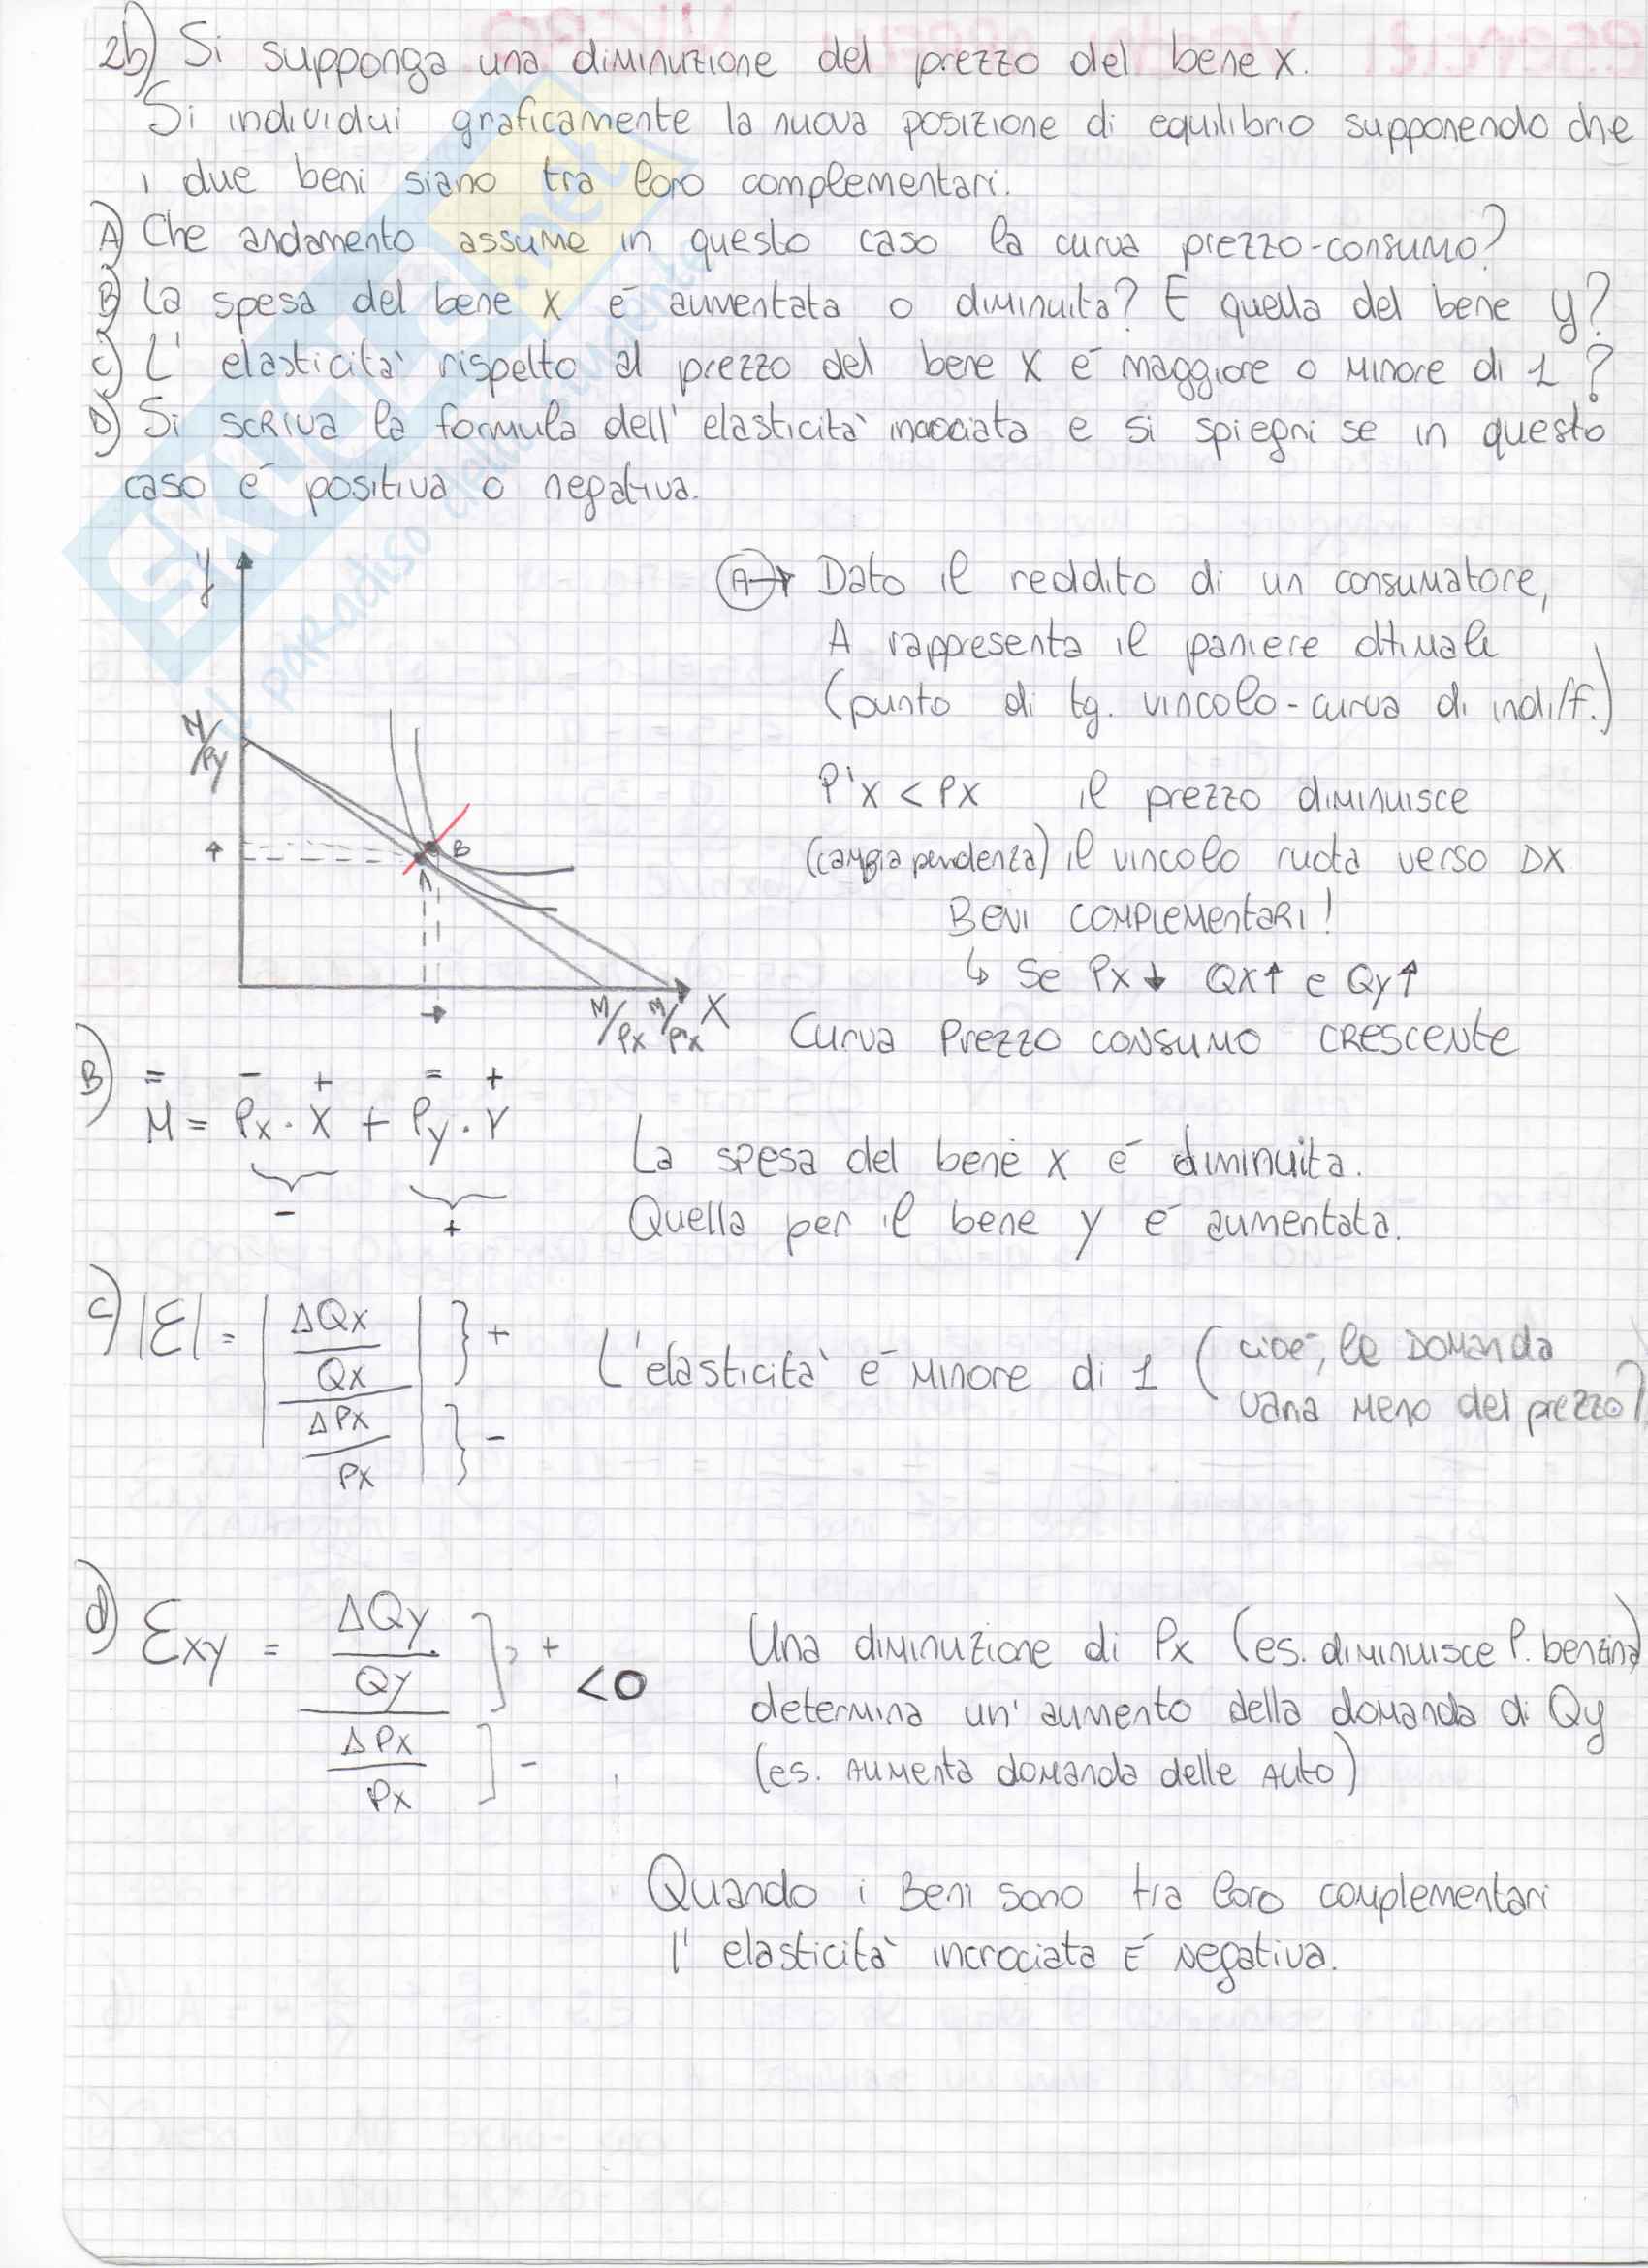 2b) Si supponga una diminuzione del prezzo del bene x.
Si individui graficamente la nuova posizione di equilibrio supponendo che
i due beni siano tra loro complementari.
A) Che andamento assume in questo caso la curva prezzo-consumo?
B) La spesa del bene x è aumentata o diminuita? E quella del bene y?
C) L'elasticità rispetto al prezzo del bene x è maggiore o minore di 1?
D) Si scriva la formula dell'elasticità incrociata e si spieghi se in questo
caso è positiva o negativa.
y
M/Py
A
B
M/Px M/P'x X
A → Dato il reddito di un consumatore,
A rappresenta il paniere ottimale
(punto di tg. vincolo-curva di indiff.)
P'x < Px il prezzo diminuisce
(cambia pendenza) il vincolo ruota verso DX
BENI COMPLEMENTARI!
↳ Se Px↓ Qx↑ e Qy↑
Curva Prezzo consumo CRESCENTE
B) = - + = +
M = Px · X + Py · Y
- +
La spesa del bene x è diminuita.
Quella per il bene y è aumentata.
C) |E| = | ΔQx / Qx | } +
| ΔPx / Px | } -
L'elasticità è minore di 1 (cioè, la domanda
varia meno del prezzo)
d) Exy = ΔQy / Qy ] +
ΔPx / Px ] -
<0
Una diminuzione di Px (es. diminuisce P. benzina)
determina un'aumento della domanda di Qy
(es. aumenta domanda delle auto)
Quando i Beni sono tra loro complementari
l'elasticità incrociata è negativa.
SKUOLA.net
il paradiso dello studente